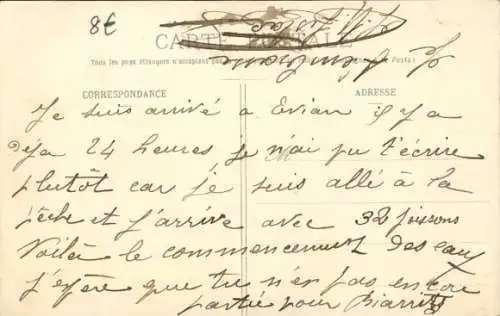 8€
CARTE POSTALE
Tous les pays étrangers n'acceptent pas
CORRESPONDANCE
ADRESSE
Je suis arrivé à Evian il y a
déja 24 heures je n'ai pu t'écrire
plutôt car je suis allé à la
pêche et j'arrive avec 32 poissons
Voilà le commencement des eaux
j'espère que tu n'es pas encore
partie pour Biarritz